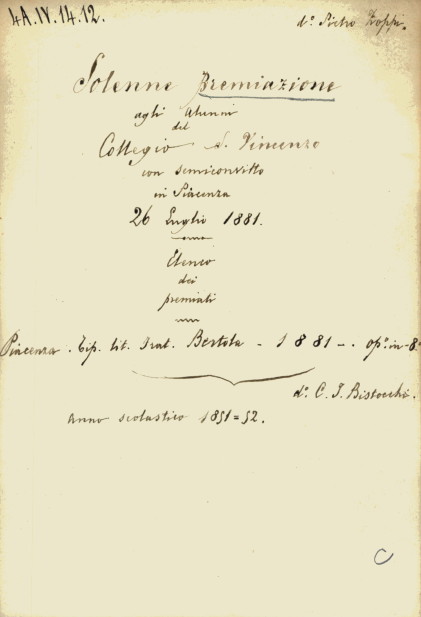 4A.IV.14.12.
d.º Pietro Zoppi.
Solenne Premiazione
agli Alunni
del
Collegio S. Vincenzo
con semiconvitto
in Piacenza
26 Luglio 1881.
Elenco
dei
premiati
Piacenza. Tip. lit. Frat. Bertola - 1881 - . op.º in-8º
d.º C. J. Bistocchi.
Anno scolastico 1851=52.
C